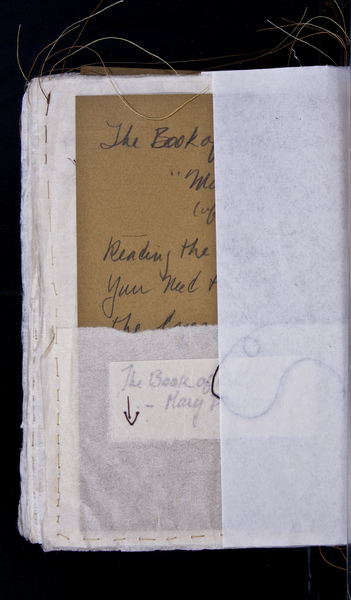 The Book of
"Mo
(of
Reading the
Your Need t
the
The Book of
- Mary